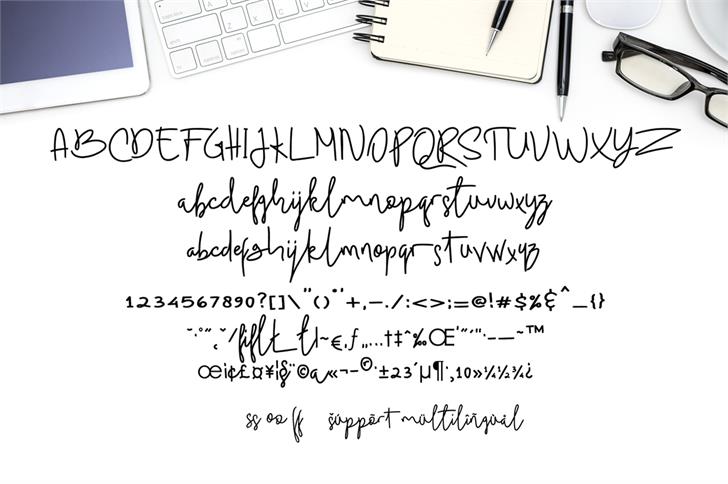 ABCDEFGHIJKLMNOPQRSTUVWXYZ
abcdefghijklmnopqrstuvwxyz
abcdefghijklmnopqrstuvwxyz
1234567890?[]\¨()¨'+,-./:<>;=@!#$%&^_{}
fiflŁ ł~€,ƒ„…†‡ˆ‰Œ'"'"·–—~™
œi¢£¤¥¦§¨©a«¬-®·±23´µ¶·¸10»¼½¾¿
ss oo ff šüppõrt mültilîñgùål